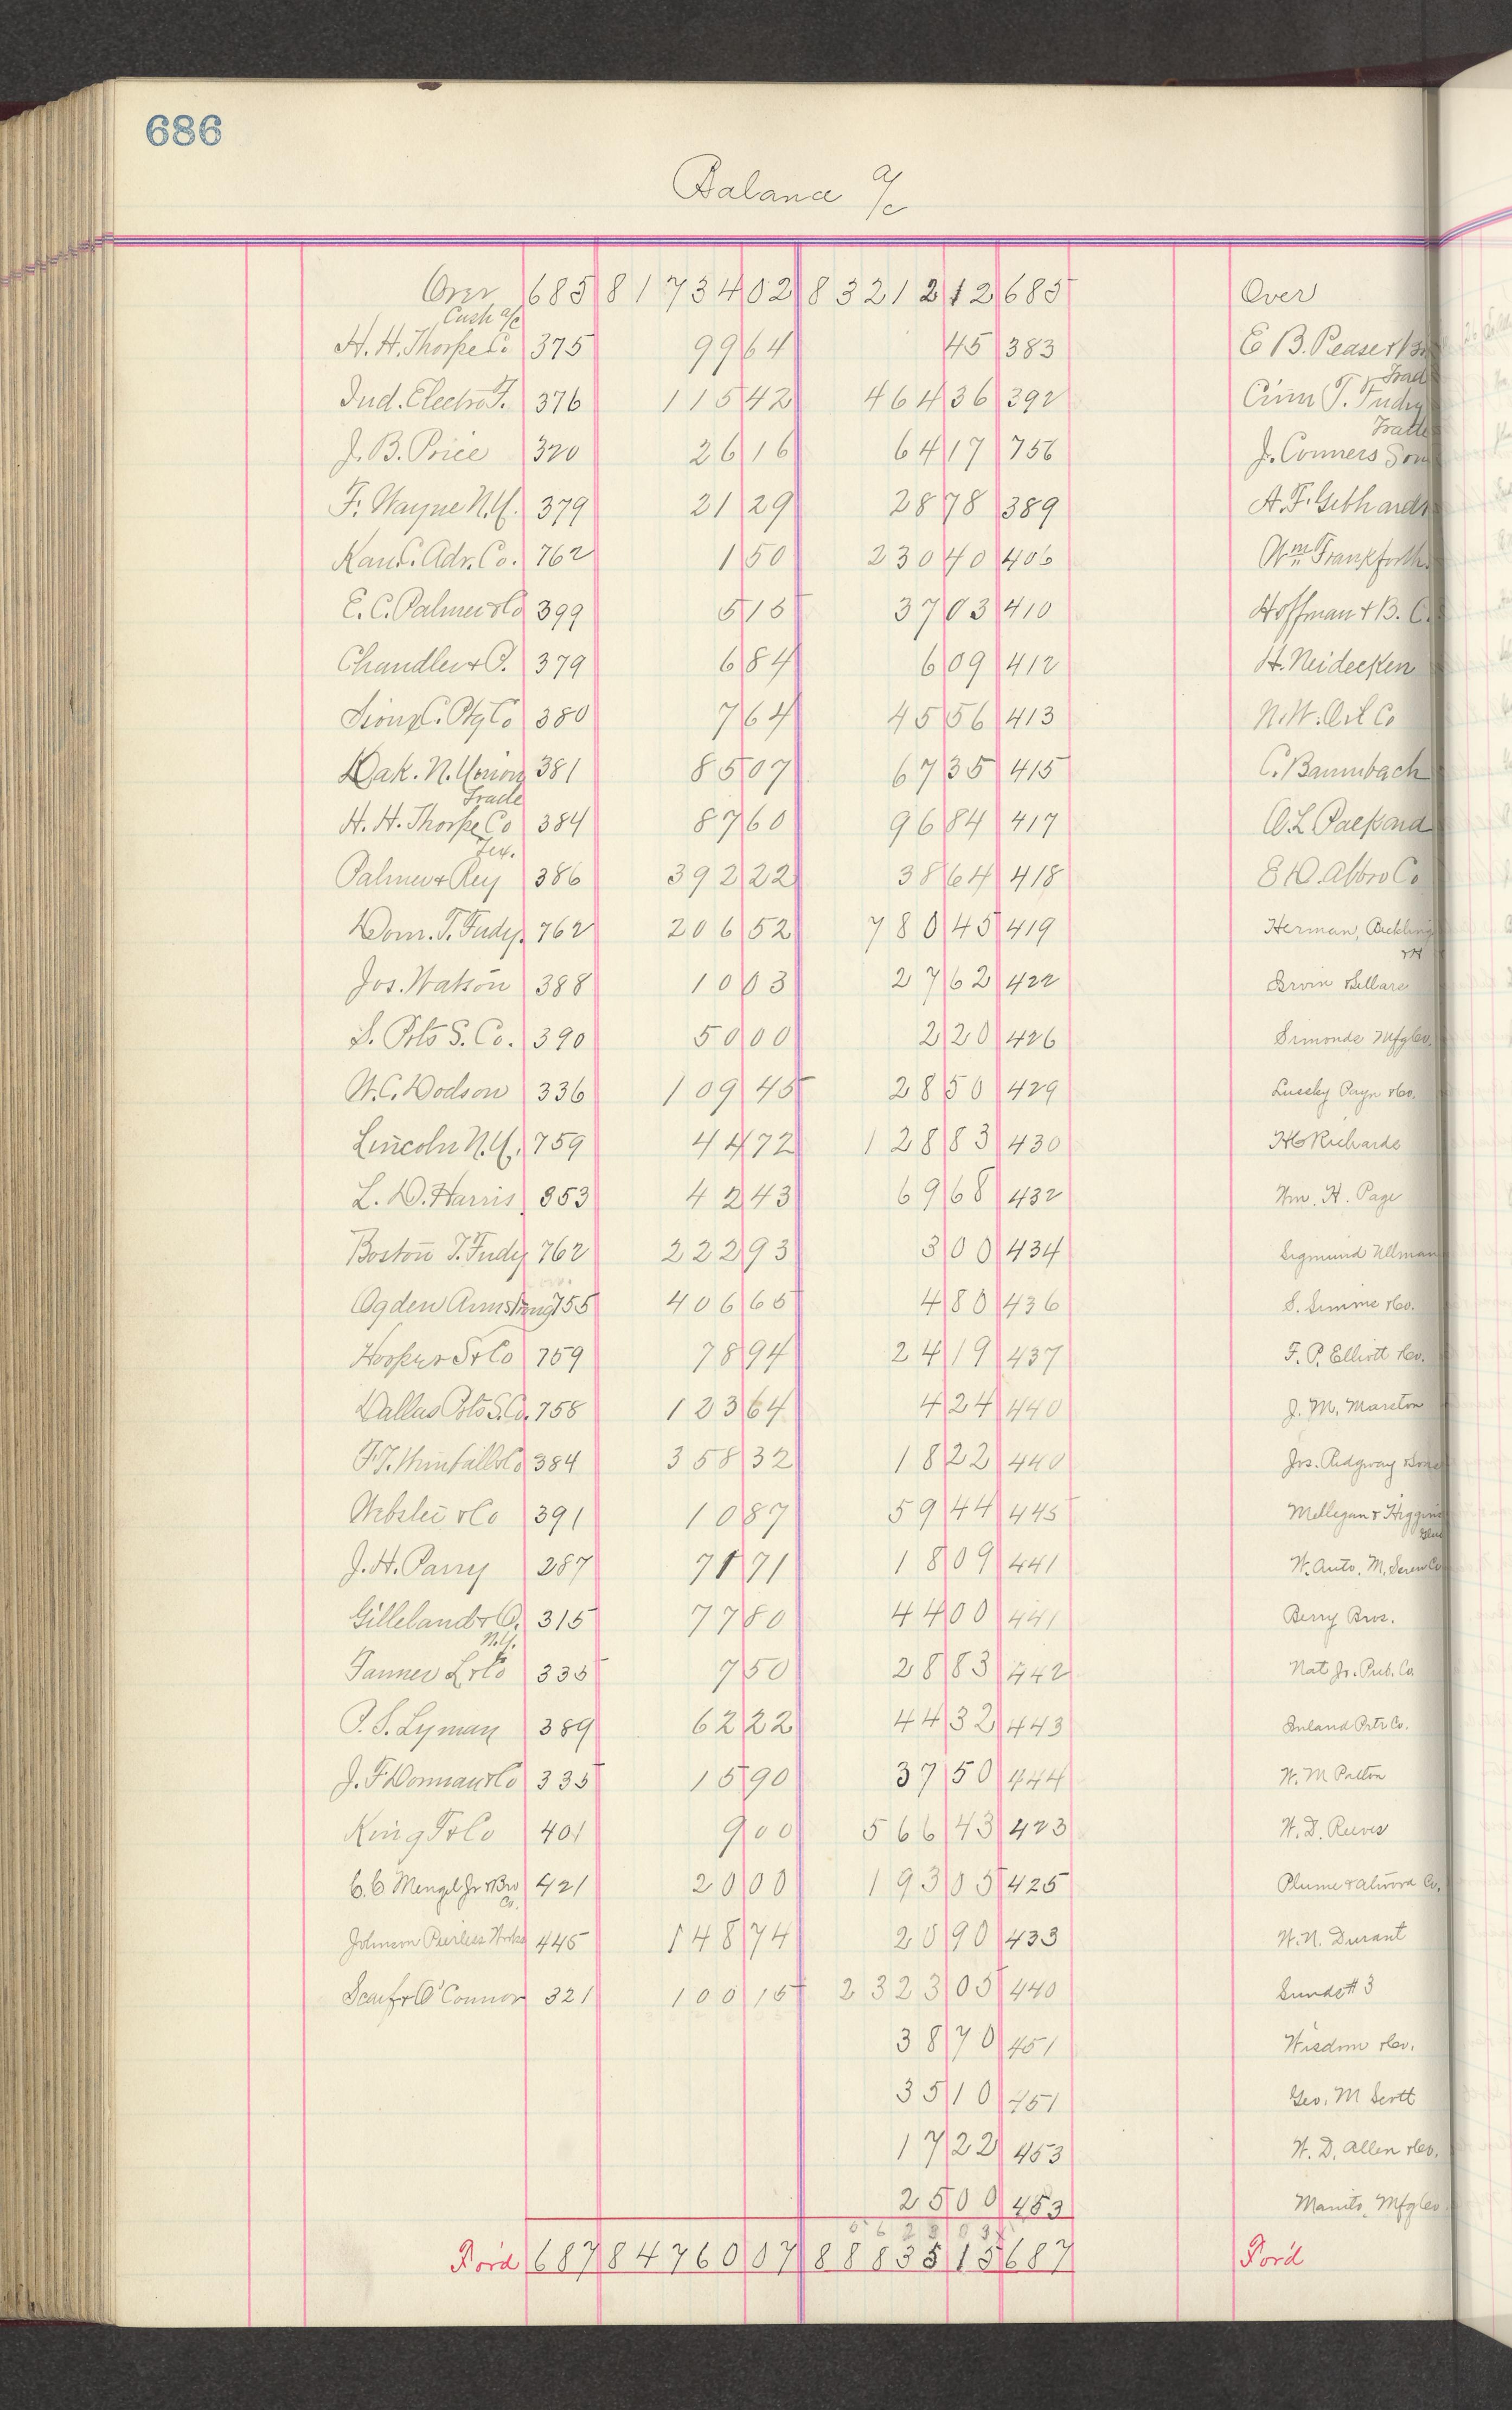 686
Balance a/c
Over 685 81734 02 83212 12 685 Over
Cash a/c
H. H. Thorpe Co 375 99 64 45 383 E B. Pease
Trad
Ind. Electro T. 376 115 42 464 36 392 Cinn T. Fudry
Trade
J. B. Price 320 26 16 64 17 756 J. Conners Son
Ft. Wayne N.U. 379 21 29 28 78 389 A. F. Gebhardt
Kan. C. Adv. Co. 762 1 50 230 40 406 Wm Frankfurth
E. C. Palmer & Co 399 5 15 37 03 410 Hoffman & B. C.
Chandler & P. 379 6 84 6 09 412 H. Neidecken
Sioux C. Ptg Co 380 7 64 45 56 413 N. W. Art Co
Dak. N. Union 381 85 07 67 35 415 C. Baumbach
Trade
H. H. Thorpe Co 384 87 60 96 84 417 O. L. Packard
Tex.
Palmer & Rey 386 392 22 38 64 418 E D. Albro Co
Dom. T. Fudy. 762 206 52 780 45 419 Herman, Bucking
Jos. Watson 388 10 03 27 62 422 Ervin Sellars
S. Ptrs S. Co. 390 50 00 2 20 426 Simonds Mfg Co.
W. C. Dodson 336 109 45 28 50 429 Payn & Co.
Lincoln N.U. 759 44 72 128 83 430 Richards
L. D. Harris 353 42 43 69 68 432 Wm. H. Page
Boston T. Fudy 762 222 93 3 00 434 Sigmund Ullman
Ogden Armstrong 755 406 65 4 80 436 S. Simms & Co.
Hooper S & Co 759 78 94 24 19 437 F. P. Elliott & Co.
Dallas Ptrs S. Co. 758 123 64 4 24 440 J. M. Marston
384 358 32 18 22 440 Jos. Ridgway & Son
Webster & Co 391 10 87 59 44 445 Mellegan & Higgins
Glue
J. H. Parry 287 71 71 18 09 441 W. Auto. M. Screw Co
Gilleland & O. 315 77 80 44 00 441 Berry Bros.
N.Y.
Tanner L & Co 335 7 50 28 83 442 Nat Jr. Pub. Co
P. S. Lyman 389 62 22 44 32 443 Inland Prtr Co.
J. F. Dorman & Co 335 15 90 37 50 444 W. M Patton
King F & Co 401 9 00 566 43 423 W. D. Reeves
C. C Mengel Jr & Bro Co. 421 20 00 193 05 425 Plume & Atwood Co.
Johnson Peerless Works 445 148 74 20 90 433 W. N. Durant
Scarf & O'Connor 321 100 15 2323 05 440 Sunds # 3
38 70 451 Wisdom & Co.
35 10 451 Geo. M Scott
17 22 453 W. D. Allen & Co.
25 00 453 Manito. Mfg Co
Ford 687 84760 07 88835 15 687 Ford